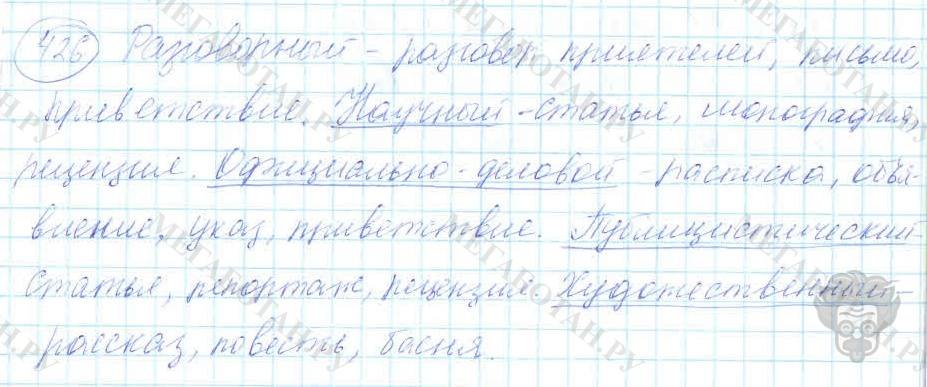 426 Разговорный - разговор приятелей, письмо,
приветствие. Научный - статья, монография,
рецензия. Официально-деловой - расписка, объя-
вление, указ, приветствие. Публицистический
статья, репортаж, рецензия. Художественный -
рассказ, повесть, басня.
МЕГАБОТАН.РУ